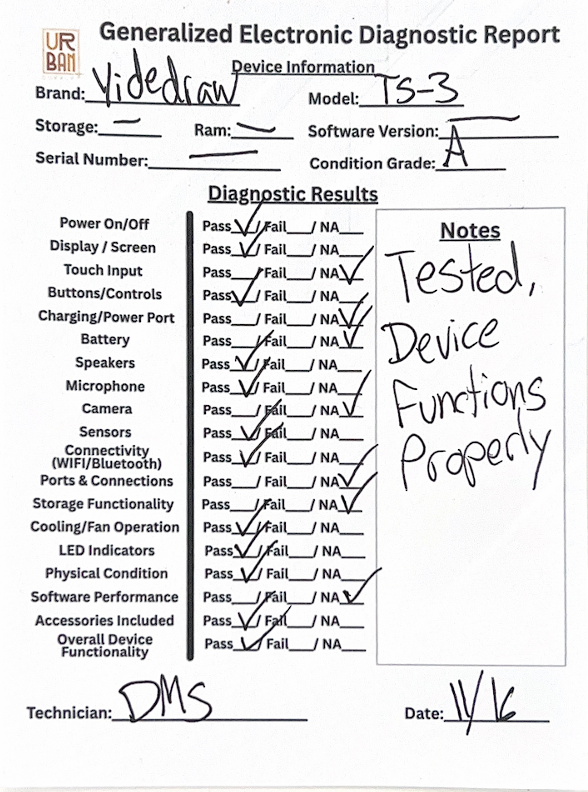 URBAN
Generalized Electronic Diagnostic Report
Device Information
Brand: Videdraw Model: TS-3
Storage: — Ram: — Software Version: —
Serial Number: — Condition Grade: A
Diagnostic Results
Power On/Off Pass ✓/ Fail___/ NA___
Display / Screen Pass ✓/ Fail___/ NA___
Touch Input Pass___/ Fail___/ NA ✓
Buttons/Controls Pass ✓/ Fail___/ NA___
Charging/Power Port Pass___/ Fail___/ NA ✓
Battery Pass___/ Fail___/ NA ✓
Speakers Pass ✓/ Fail___/ NA___
Microphone Pass ✓/ Fail___/ NA___
Camera Pass___/ Fail___/ NA ✓
Sensors Pass ✓/ Fail___/ NA___
Connectivity
(WIFI/Bluetooth) Pass ✓/ Fail___/ NA___
Ports & Connections Pass___/ Fail___/ NA ✓
Storage Functionality Pass___/ Fail___/ NA ✓
Cooling/Fan Operation Pass ✓/ Fail___/ NA___
LED Indicators Pass ✓/ Fail___/ NA___
Physical Condition Pass ✓/ Fail___/ NA___
Software Performance Pass___/ Fail___/ NA ✓
Accessories Included Pass ✓/ Fail___/ NA___
Overall Device
Functionality Pass ✓/ Fail___/ NA___
Notes
Tested,
Device
Functions
Properly
Technician: DMS Date: 11/16